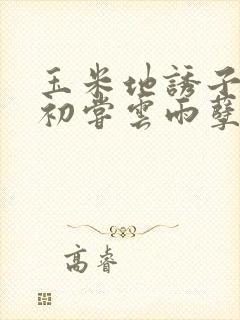 玉米地誘子
初嘗雲雨孽
高睿